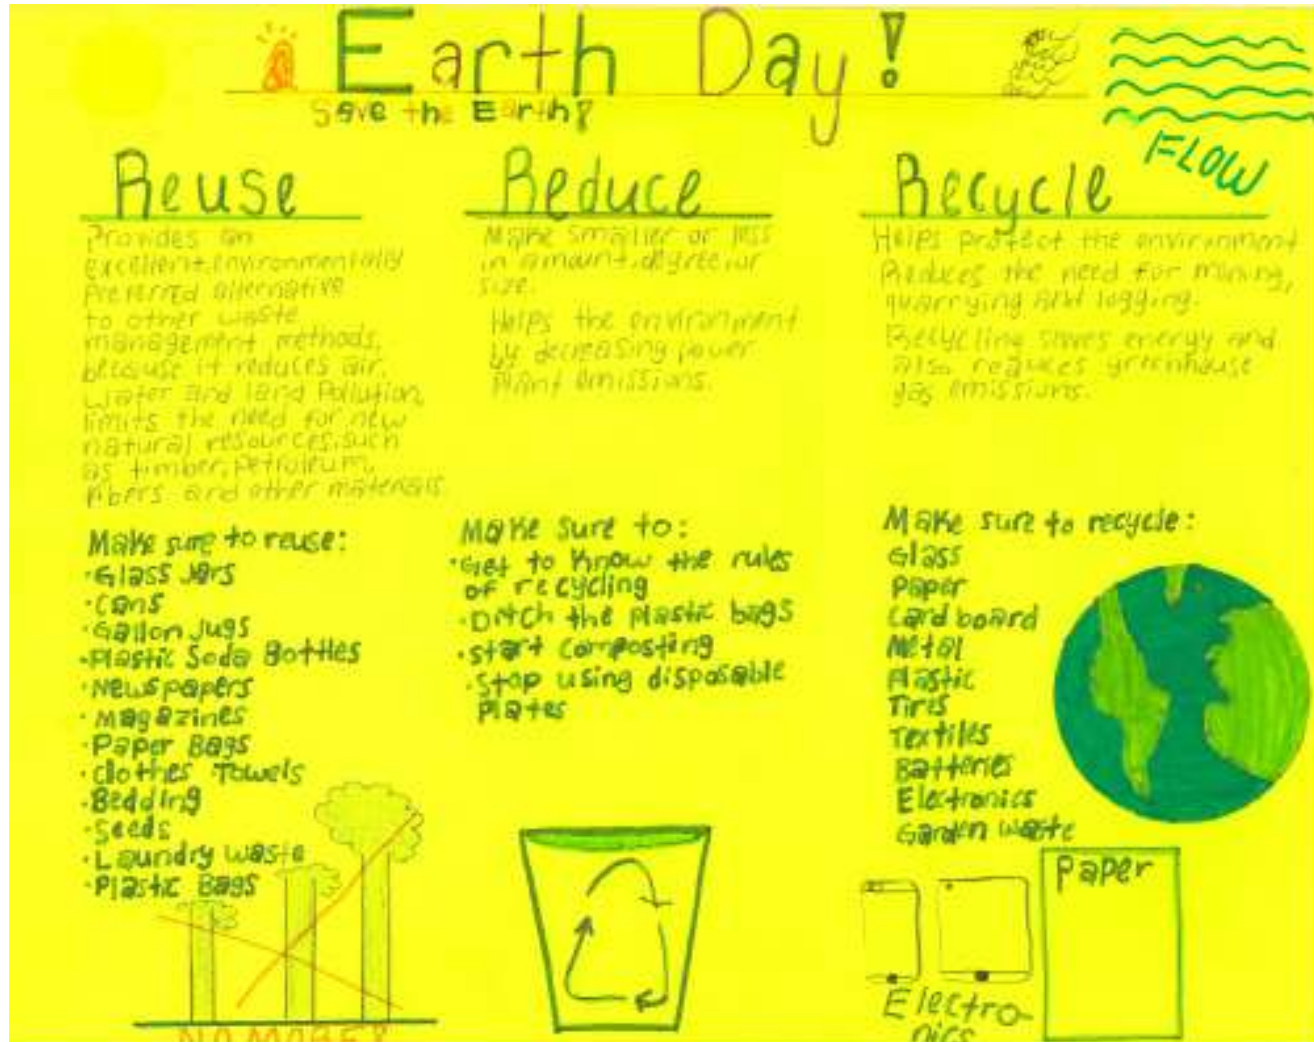 Earth Day!
Save the Earth!
FLOW
Reuse
Provides an
excellent, environmentally
preferred alternative
to other waste
management methods,
because it reduces air,
water and land Pollution,
limits the need for new
natural resources, such
as timber, Petroleum,
fibers and other materials.
Make sure to reuse:
·Glass Jars
·Cans
·Gallon Jugs
·Plastic Soda Bottles
·Newspapers
·Magazines
·Paper Bags
·Clothes ·Towels
·Bedding
·Seeds
·Laundry waste
·Plastic Bags
NO MORE!
Reduce
Make smaller or less
in amount, degree, or
size.
Helps the environment
by decreasing power
Plant emissions.
Make sure to:
·Get to know the rules
of recycling
·Ditch the plastic bags
·Start Composting
·Stop using disposable
Plates
Recycle
Helps protect the environment
Reduces the need for mining,
quarrying and logging.
Recycling saves energy and
also reduces greenhouse
gas emissions.
Make sure to recycle:
Glass
Paper
Card board
Metal
Plastic
Tires
Textiles
Batteries
Electronics
Garden waste
Paper
Electro-
nics